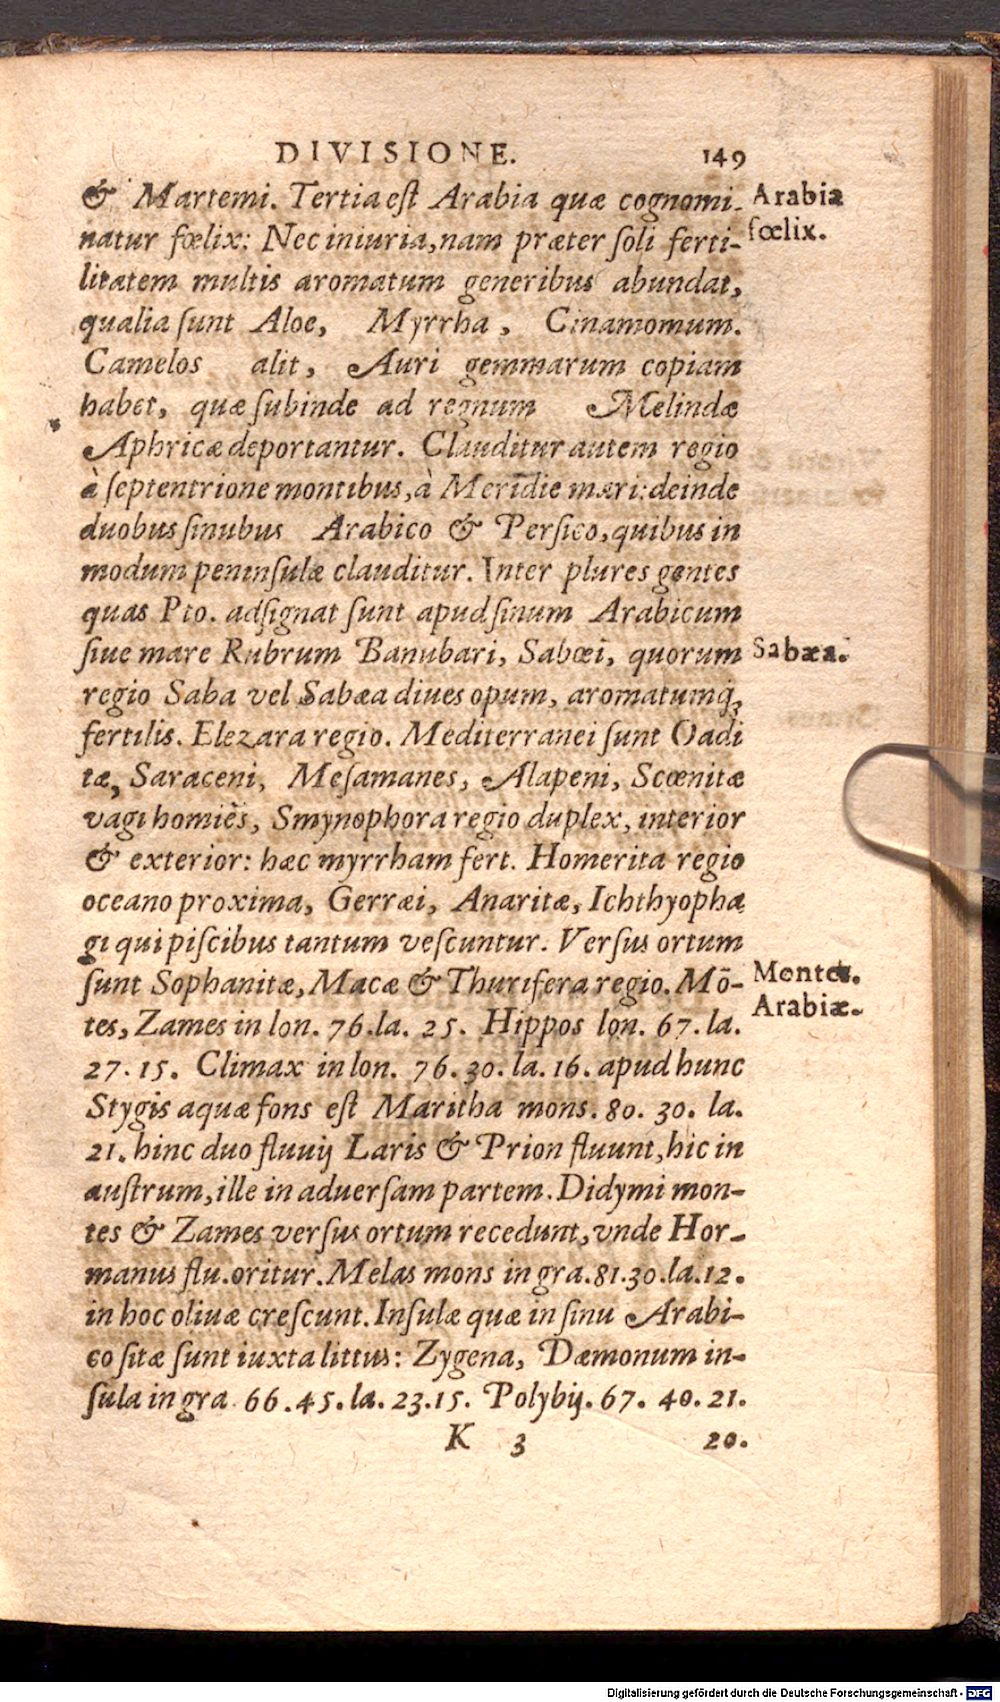 DIVISIONE. 149
& Martemi. Tertia eſt Arabia quæ cognomi-
natur fœlix: Nec iniuria, nam præter ſoli ferti-
litatem multis aromatum generibus abundat,
qualia ſunt Aloe, Myrrha, Cinamomum.
Camelos alit, Auri gemmarum copiam
habet, quæ ſubinde ad regnum Melindæ
Aphricæ deportantur. Clauditur autem regio
à ſeptentrione montibus, à Meridie mari: deinde
duobus ſinubus Arabico & Perſico, quibus in
modum peninſulæ clauditur. Inter plures gentes
quas Pto. adſignat ſunt apud ſinum Arabicum
ſiue mare Rubrum Banubari, Sabœi, quorum
regio Saba vel Sabæa diues opum, aromatumq́;
fertilis. Elezara regio. Mediterranei ſunt Oadi
tæ, Saraceni, Meſamanes, Alapeni, Scœnitæ
vagi homiẽs, Smynophora regio duplex, interior
& exterior: hæc myrrham fert. Homerita regio
oceano proxima, Gerræi, Anaritæ, Ichthyopha
gi qui piſcibus tantum veſcuntur. Verſus ortum
ſunt Sophanitæ, Macæ & Thurifera regio. Mõ-
tes, Zames in lon. 76. la. 25. Hippos lon. 67. la.
27. 15. Climax in lon. 76. 30. la. 16. apud hunc
Stygis aquæ fons eſt Maritha mons. 80. 30. la.
21. hinc duo fluuij Laris & Prion fluunt, hic in
auſtrum, ille in aduerſam partem. Didymi mon-
tes & Zames verſus ortum recedunt, vnde Hor-
manus flu. oritur. Melas mons in gra. 81. 30. la. 12.
in hoc oliuæ creſcunt. Inſulæ quæ in ſinu Arabi-
co ſitæ ſunt iuxta littus: Zygena, Dæmonum in-
ſula in gra. 66. 45. la. 23. 15. Polybij. 67. 40. 21.
K 3 20.
Arabia
fœlix.
Sabæa.
Montes.
Arabiæ.
Digitalisierung gefördert durch die Deutsche Forschungsgemeinschaft - DFG